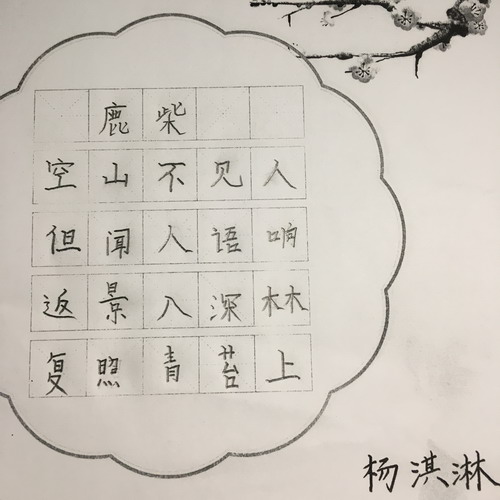 鹿柴
空山不见人
但闻人语响
返景入深林
复照青苔上
杨淇淋